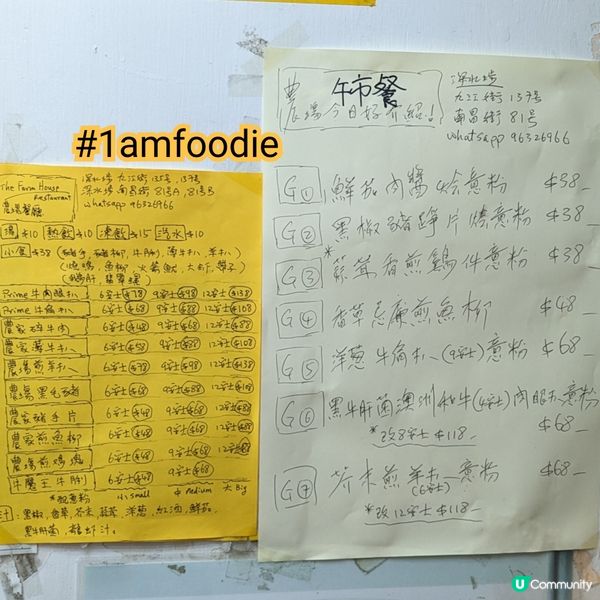 #1amfoodie
The Farm House
Restaurant
農場餐廳
深水埗九江街135號, 137號
深水埗南昌街813A, 81號B
Whatsapp 96326966
湯 $10 熱飲 $10 凍飲 $15 汽水 $10
小食 $38
Prime牛肉眼扒 6安士 $78 9安士 $98 12安士 $138
Prime牛角扒 6安士 $68 9安士 $88 12安士 $108
農家碎牛肉 6安士 $48 9安士 $68 12安士 $88
農家薄牛扒 6安士 $58 9安士 $88 12安士 $108
農場煎羊扒 6安士 $78 9安士 $98 12安士 $138
農場黑毛豬 6安士 $48 9安士 $68 12安士 $88
農家豬手片 6安士 $48 9安士 $68 12安士 $88
農家煎魚柳 6安士 $48 9安士 $68 12安士 $88
農場煎鷄塊 6安士 $48 9安士 $68 12安士 $88
牛魔王牛肋 6安士 $48 9安士 $68
*配意粉 小 small 中 Medium 大 Big
汁: 黑椒, 香草, 芥末, 蒜茸, 洋葱, 紅酒, 鮮茄,
黑牛肝菌, 龍蝦汁.
午市餐
農場今日好介紹!
深水埗
九江街137號
南昌街81號
Whatsapp 96326966
G① 鮮茄肉醬燴意粉 $38
G② 黑椒豬踭片燒意粉 $38
G③ *蒜茸香煎鷄件意粉 $38
G④ 香草忌廉煎魚柳 $48
G⑤ 洋葱牛角扒(9安士)意粉 $68
G⑥ 黑牛肝菌澳洲和牛(4安士)肉眼扒意粉 $68
*改8安士 $118
G⑦ 芥末煎羊扒(6安士)意粉 $68
*改12安士 $118
U Community